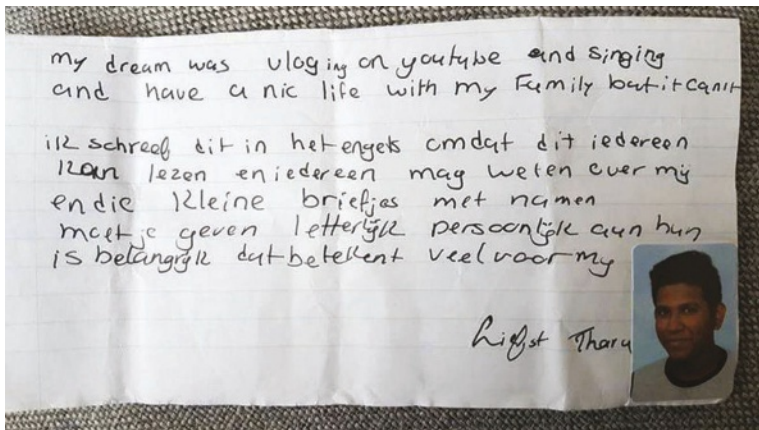 my dream was vloging on youtube and singing
and have a nic life with my Family but it can't
ik schreef dit in het engels omdat dit iedereen
kan lezen en iedereen mag weten over mij
en die kleine briefjes met namen
moet je geven letterlijk persoonlijk aan hun
is belangrijk dat betekent veel voor mij
liefst Tharu